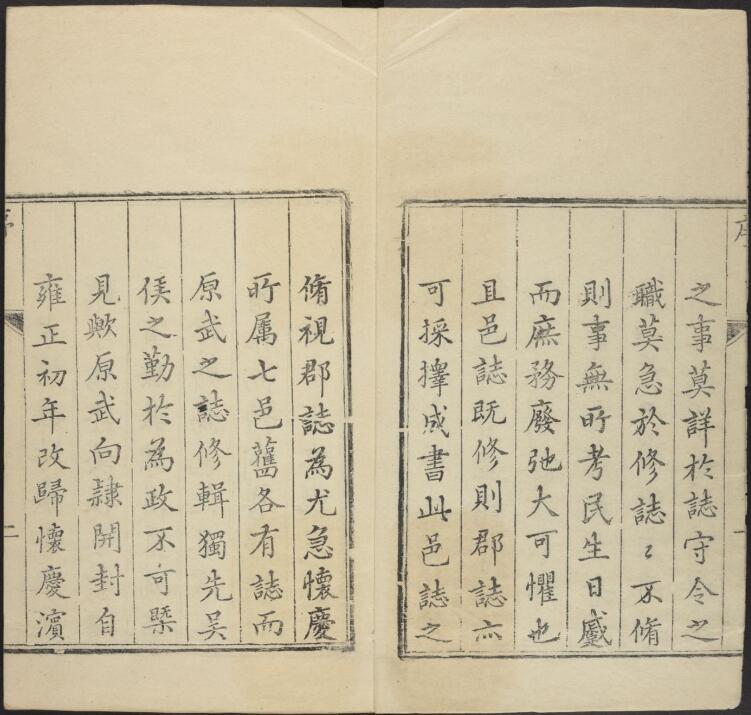 之事莫詳於誌守令之
職莫急於修誌〻不脩
則事無所考民生日蹙
而庶務廢弛大可懼也
且邑誌既修則郡誌亦
可採擇成書此邑誌之
脩視郡誌為尤急懷慶
所属七邑舊各有誌而
原武之誌修輯獨先吴
侯之勤於為政不可槩
見歟原武向隷開封自
雍正初年改歸懷慶濵